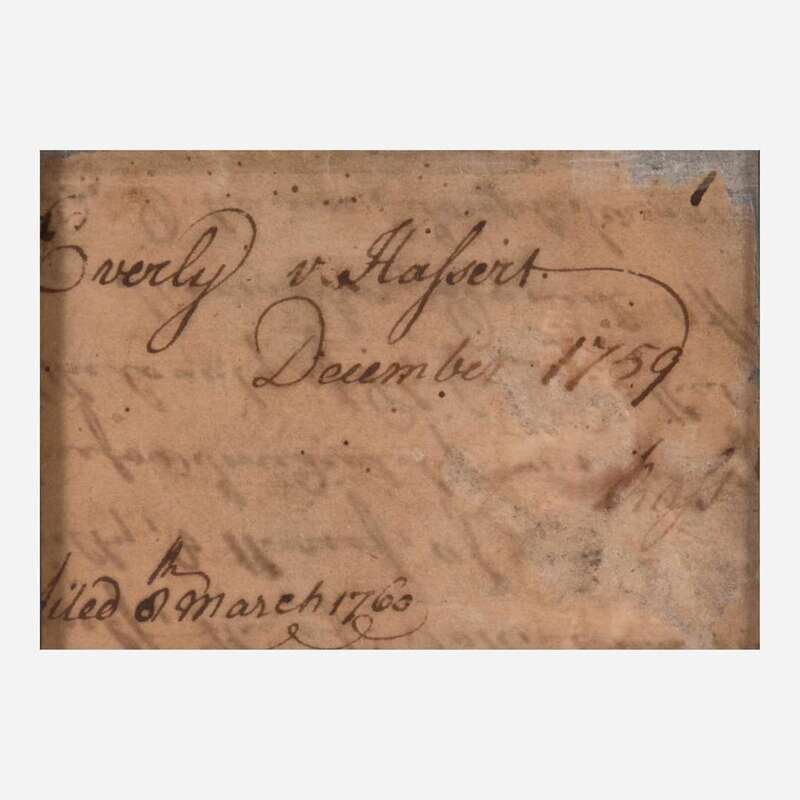 Everly v. Haſsert
December 1759
filed 8th March 1760